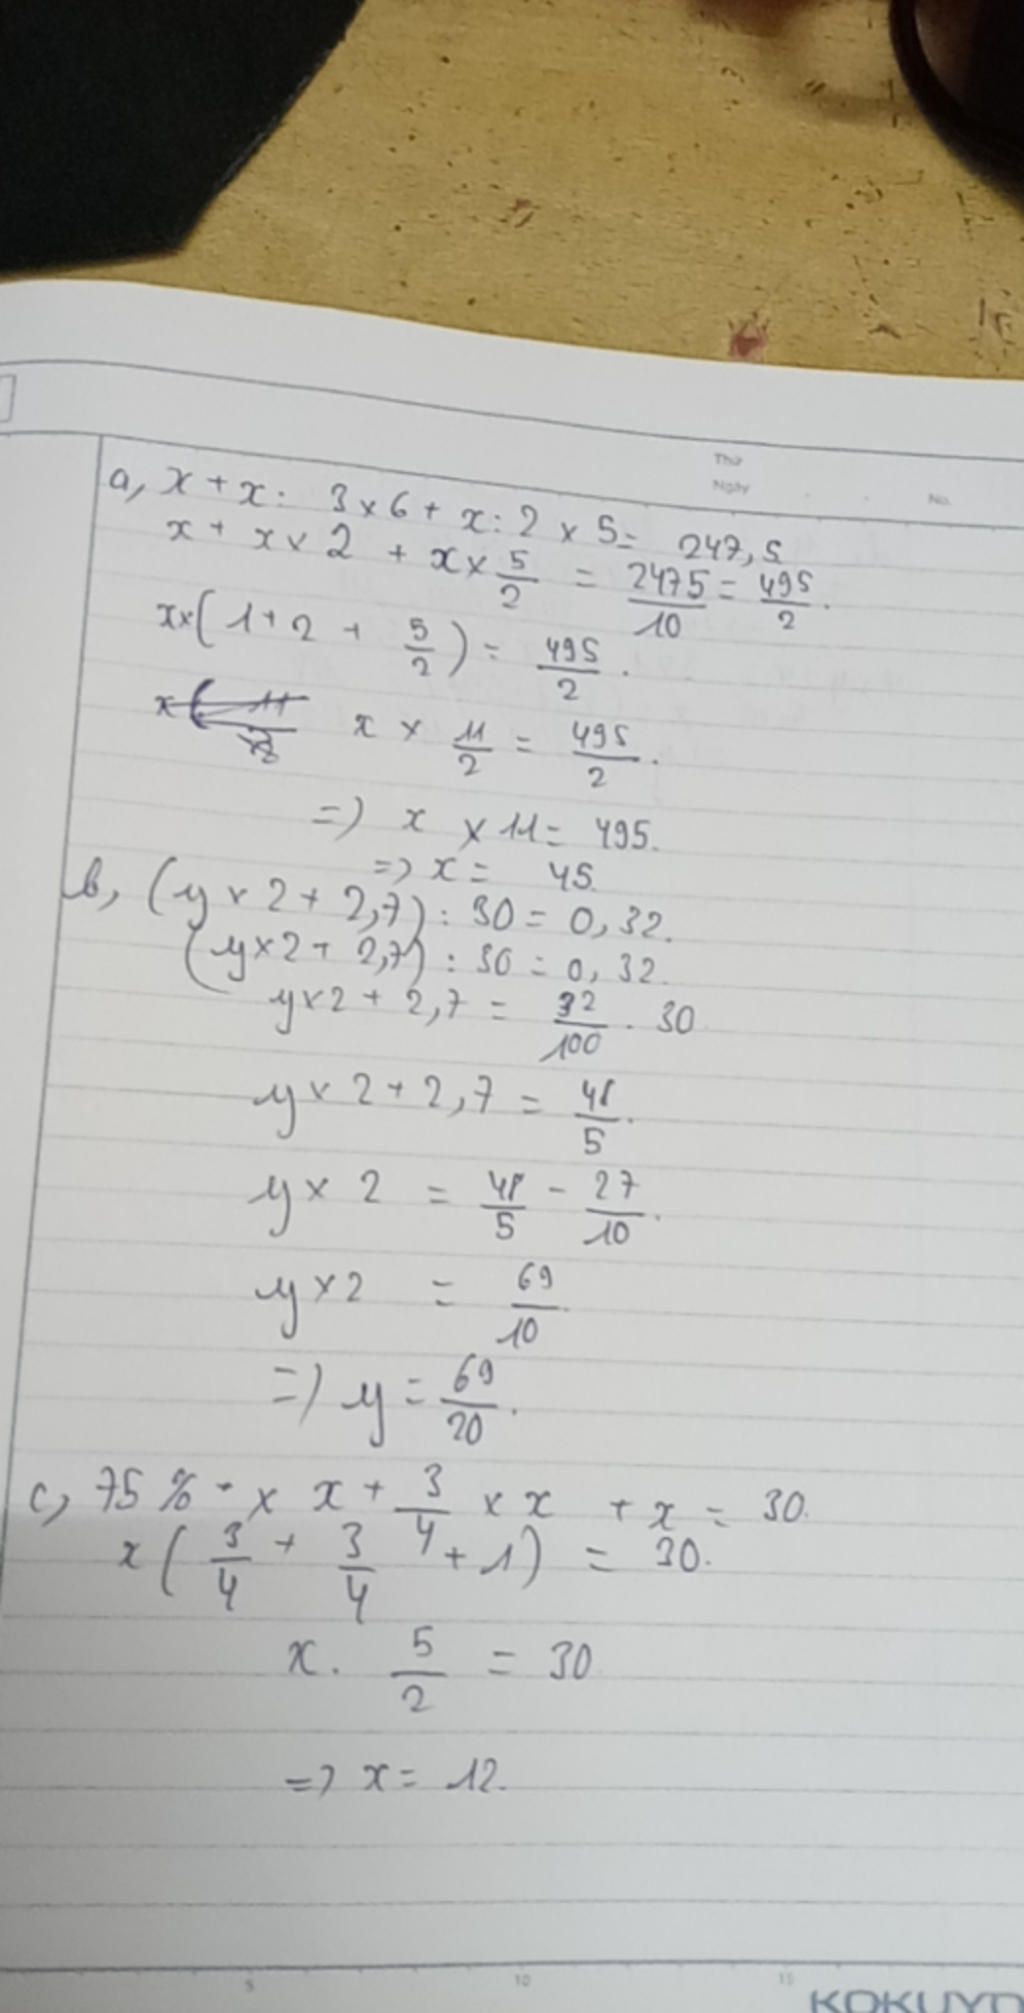 Thứ
Ngày . . No.
a, x + x : 3 x 6 + x : 2 x 5 = 247,5
x + x x 2 + x x 5/2 = 2475/10 = 495/2.
x x (1 + 2 + 5/2) = 495/2.
x x 11/2 = 495/2.
=> x x 11 = 495.
=> x = 45.
b, (y x 2 + 2,7) : 30 = 0,32.
(y x 2 + 2,7) : 30 = 0,32.
y x 2 + 2,7 = 32/100 . 30
y x 2 + 2,7 = 48/5.
y x 2 = 48/5 - 27/10.
y x 2 = 69/10
=> y = 69/20.
c, 75% - x x + 3/4 x x + x = 30.
x (3/4 + 3/4 + 1) = 30.
x . 5/2 = 30
=> x = 12.
5 10 15
KOKUYO